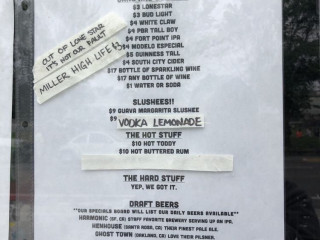 $3 LONESTAR
$3 BUD LIGHT
$4 WHITE CLAW
$4 PBR TALL BOY
$4 FORT POINT IPA
$4 MODELO ESPECIAL
$6 GUINNESS TALL
$4 SOUTH CITY CIDER
$17 BOTTLE OF SPARKLING WINE
$17 ANY BOTTLE OF WINE
$1 WATER OR SODA
OUT OF LONE STAR
IT'S NOT OUR FAULT
MILLER HIGH LIFE $3
SLUSHEES!!
$9 GUAVA MARGARITA SLUSHEE
$9 VODKA LEMONADE
THE HOT STUFF
$10 HOT TODDY
$10 HOT BUTTERED RUM
THE HARD STUFF
YEP, WE GOT IT.
DRAFT BEERS
**OUR SPECIALS BOARD WILL LIST OUR DAILY BEERS AVAILABLE**
HARMONIC (SF, CA) STAFF FAVORITE BREWERY SERVING UP AN IPA.
HENHOUSE (SANTA ROSA, CA) THEIR FINEST PALE ALE.
GHOST TOWN (OAKLAND, CA) LOVE THEIR PILSNER.